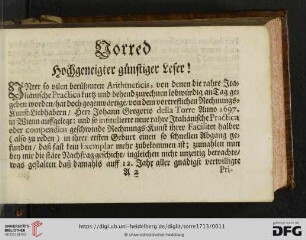 Vorred
Hochgeneigter günstiger Leser!
Unter so vilen berühmten Arithmeticis, von denen die rahre Ita-
liänische Practica kurtz und behend zurechnen lobwürdig an Tag ge-
geben worden/ hat doch gegenwärtige, von dem vortrefflichen Rechnungs-
Kunst-Liebhabern/ Herr Johann Gregorio della Torre Anno 1697.
in Wienn auffgelegt: und so intitulierte neue rahre Italiänische Practica
oder compendios geschwinde Rechnungs-Kunst ihrer Facilitet halber
(also zu reden) in ihrer ersten Geburt einen so schnellen Abgang ge-
funden/ daß fast kein Exemplar mehr zubekommen ist; zumahlen nun
bey mir die stäte Nachfrag geschicht/ ingleichen mich unzeitig betrachte/
was gestalten daß damahls auff 12. Jahr aller gnädigst verwilligte
A 2 Pri-
https://digi.ub.uni-heidelberg.de/diglit/torre1713/0011
© Universitätsbibliothek Heidelberg
gefördert durch die
DFG